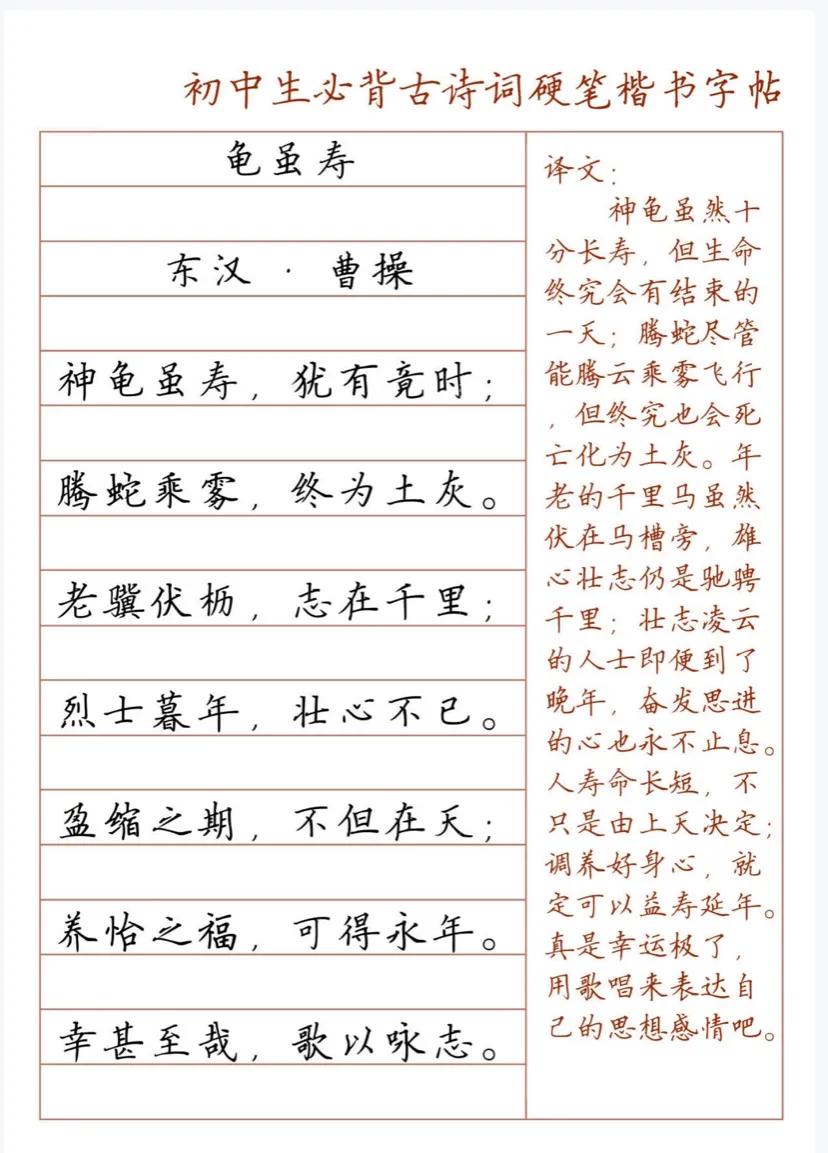 初中生必背古诗词硬笔楷书字帖
龟虽寿
东汉 · 曹操
神龟虽寿，犹有竟时；
腾蛇乘雾，终为土灰。
老骥伏枥，志在千里；
烈士暮年，壮心不已。
盈缩之期，不但在天；
养怡之福，可得永年。
幸甚至哉，歌以咏志。
译文：
神龟虽然十
分长寿，但生命
终究会有结束的
一天；腾蛇尽管
能腾云乘雾飞行
，但终究也会死
亡化为土灰。年
老的千里马虽然
伏在马槽旁，雄
心壮志仍是驰骋
千里；壮志凌云
的人士即便到了
晚年，奋发思进
的心也永不止息。
人寿命长短，不
只是由上天决定；
调养好身心，就
定可以益寿延年。
真是幸运极了，
用歌唱来表达自
己的思想感情吧。